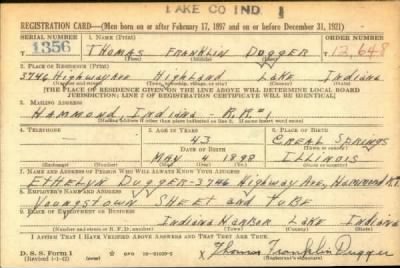 LAKE CO IND. 1
REGISTRATION CARD—(Men born on or after February 17, 1897 and on or before December 31, 1921)
SERIAL NUMBER 1. NAME (Print) ORDER NUMBER
1356 THOMAS FRANKLIN DUGGER 12,648
(First) (Middle) (Last)
2. PLACE OF RESIDENCE (Print)
3746 Highway Ave Highland Lake Indiana
(Number and street) (Town, township, village, or city) (County) (State)
[THE PLACE OF RESIDENCE GIVEN ON THE LINE ABOVE WILL DETERMINE LOCAL BOARD
JURISDICTION; LINE 2 OF REGISTRATION CERTIFICATE WILL BE IDENTICAL]
3. MAILING ADDRESS
Hammond, Indiana - R.R.
[Mailing address if other than place indicated on line 2. If same insert word same]
4. TELEPHONE 5. AGE IN YEARS 6. PLACE OF BIRTH
43 CREAL SPRINGS
DATE OF BIRTH (Town or county)
MAY 4 1898 ILLINOIS
(Exchange) (Number) (Mo.) (Day) (Yr.) (State or country)
7. NAME AND ADDRESS OF PERSON WHO WILL ALWAYS KNOW YOUR ADDRESS
ETHELYN DUGGER-3746 Highway Ave, Hammond R.1
8. EMPLOYER'S NAME AND ADDRESS
Youngstown SHEET and TUBE
9. PLACE OF EMPLOYMENT OR BUSINESS
Indiana Harbor Lake Indiana
(Number and street or R. F. D. number) (Town) (County) (State)
I AFFIRM THAT I HAVE VERIFIED ABOVE ANSWERS AND THAT THEY ARE TRUE.
D. S. S. Form 1
(Revised 1-1-42) (over) GPO 16-21630-2 Thomas Franklin Dugger
(Registrant's signature)